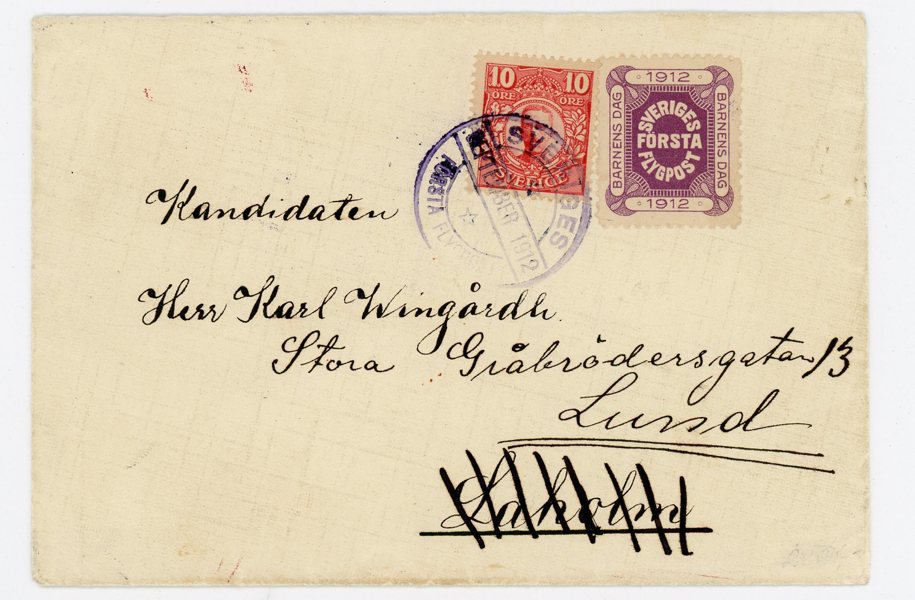 10 10
ÖRE ÖRE
SVERIGE
1912
BARNENS DAG
SVERIGES
FÖRSTA
FLYGPOST
BARNENS DAG
1912
SVERIGES
FÖRSTA
BER 1912
Kandidaten
Herr Karl Wingårdh.
Stora Gråbrödersgatan 13
Lund
Laholm